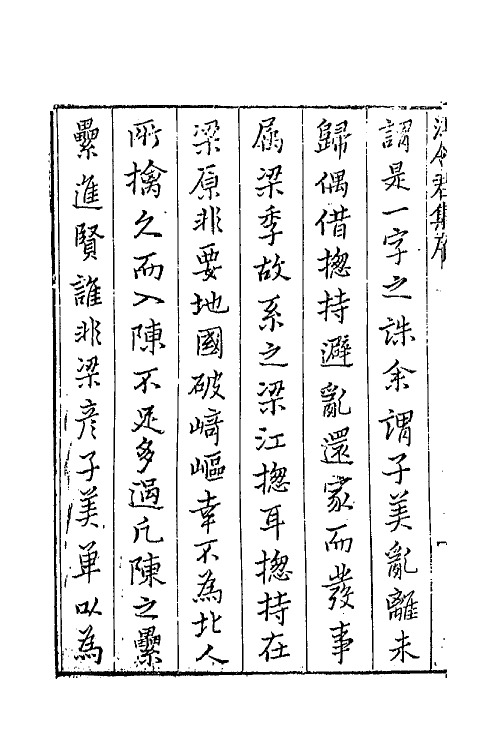 江令君集序
謂是一字之誅余謂子美亂離未
歸偶借揔持避亂還家而發事
屬梁季故系之梁江揔耳揔持在
梁原非要地國破崎嶇幸不為北人
所擒久而入陳不足多過凡陳之纍
纍進賢誰非梁彦子美單以為